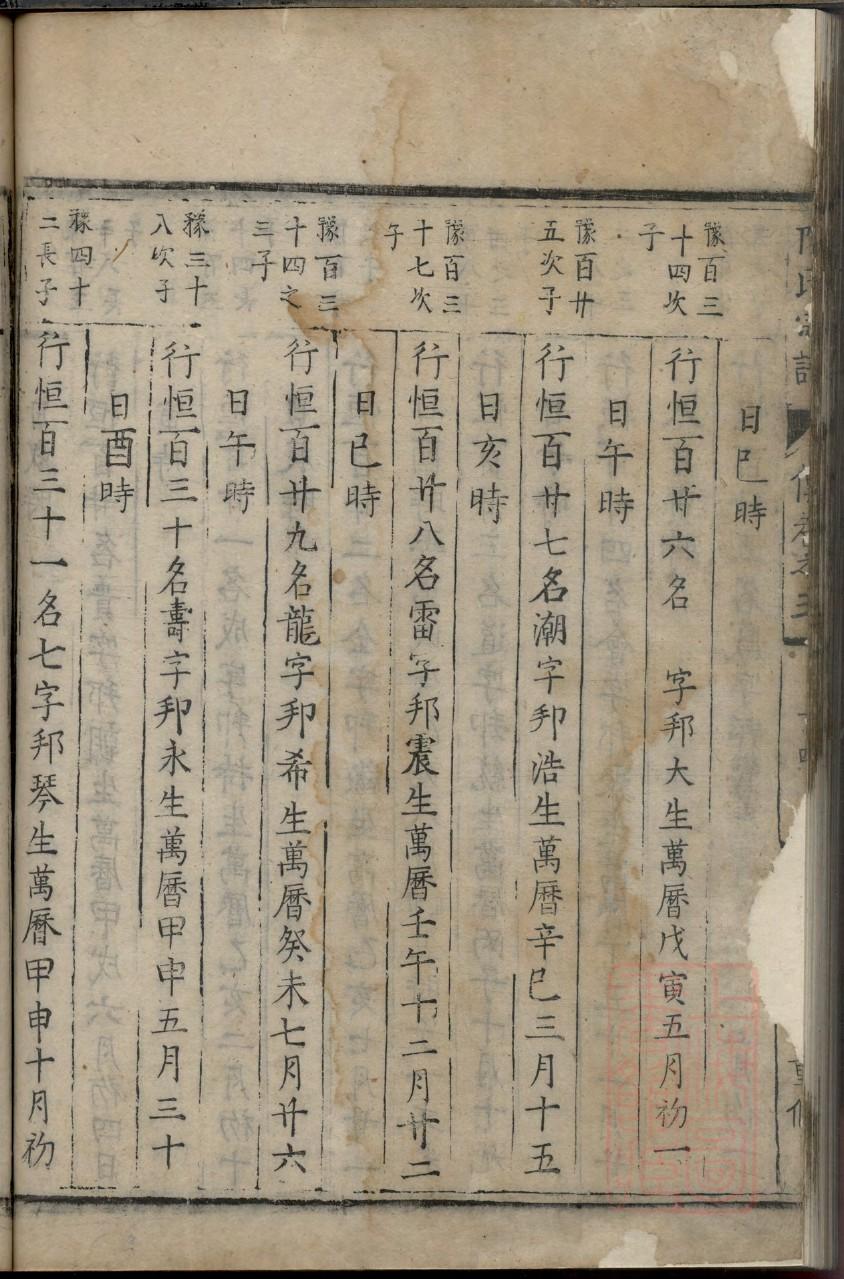 氏宗譜
傳卷之三
十四
重修
日巳時
豫百三
十四次
子
行恒百廿六名　字邦大生萬曆戊寅五月初一
日午時
豫百廿
五次子
行恒百廿七名潮字邦浩生萬曆辛巳三月十五
日亥時
豫百三
十七次
子
行恒百廿八名雷字邦震生萬曆壬午十二月廿二
日巳時
豫百三
十四之
三子
行恒百廿九名龍字邦希生萬曆癸未七月廿六
日午時
豫三十
八次子
行恒百三十名壽字邦永生萬曆甲申五月三十
日酉時
豫四十
二長子
行恒百三十一名七字邦琴生萬曆甲申十月初